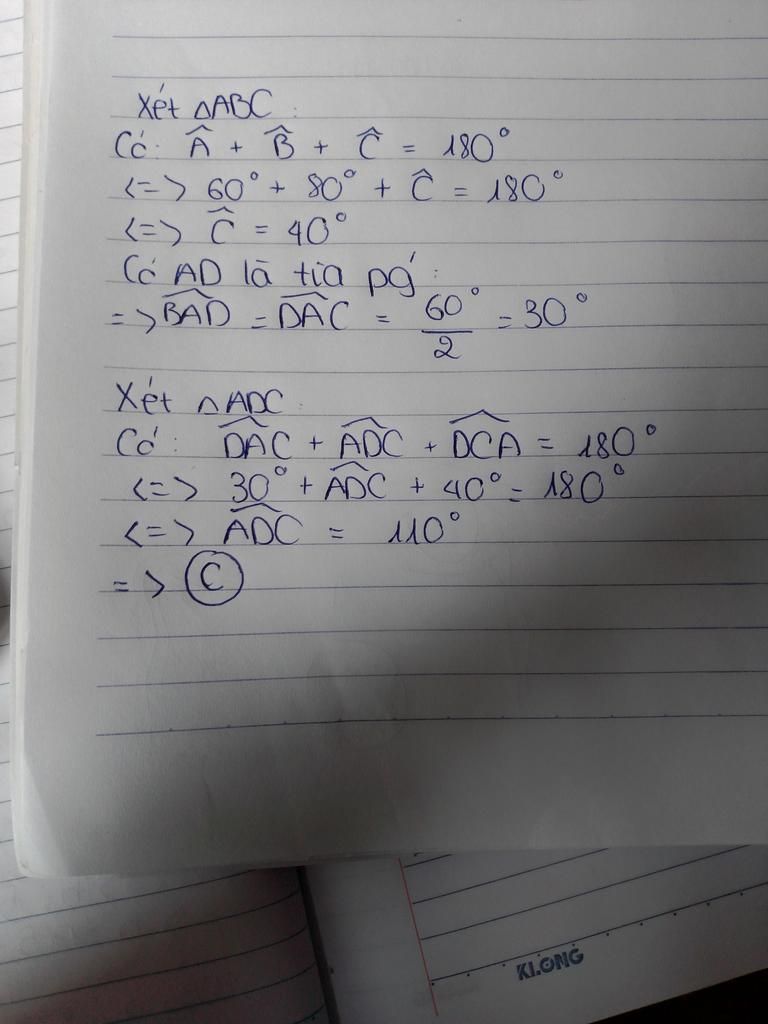 Xét △ABC :
Có: Â + B̂ + Ĉ = 180°
<=> 60° + 80° + Ĉ = 180°
<=> Ĉ = 40°
Có AD là tia pg :
=> \widehat{BAD} = \widehat{DAC} = \frac{60°}{2} = 30°
Xét △ADC
Có: \widehat{DAC} + \widehat{ADC} + \widehat{DCA} = 180°
<=> 30° + \widehat{ADC} + 40° = 180°
<=> \widehat{ADC} = 110°
=> C
KLONG